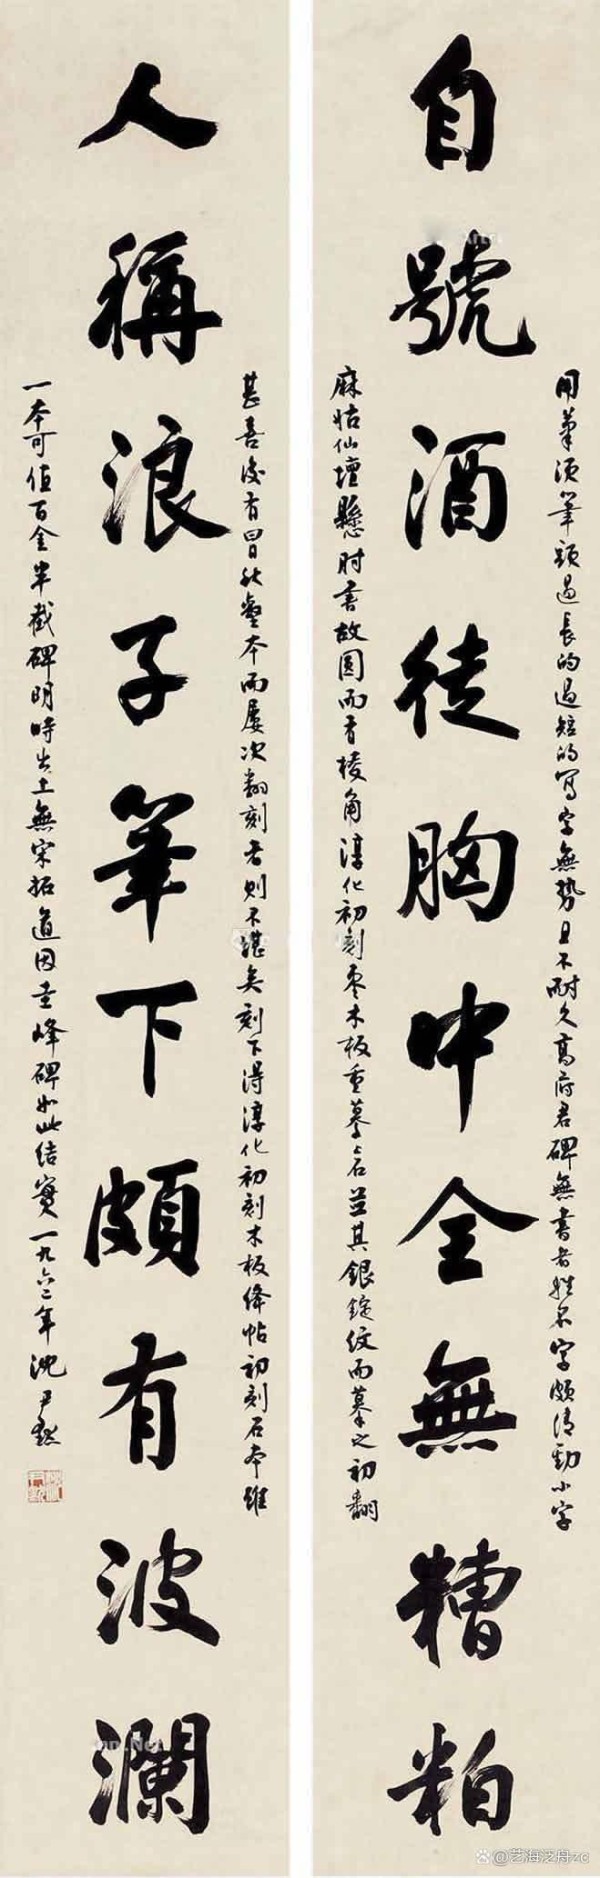 自號酒徒胸中全無糟粕
人稱浪子筆下頗有波瀾
用筆須筆頭過長的過短的寫字無勢且不耐久高府君碑無書者姓名字頗清勁小字
麻姑仙壇懸肘書故圓而有棱角淳化初刻棗木板重摹上石並其銀錠紋而摹之初翻
甚善後有秋壑本而屢次翻刻者則不堪矣刻下得淳化初刻木板絳帖初刻石本雖
一本可值百金半截碑明時出土無宋拓道因圭峰碑如此結實一九六二年沈尹默
@艺海泛舟zc